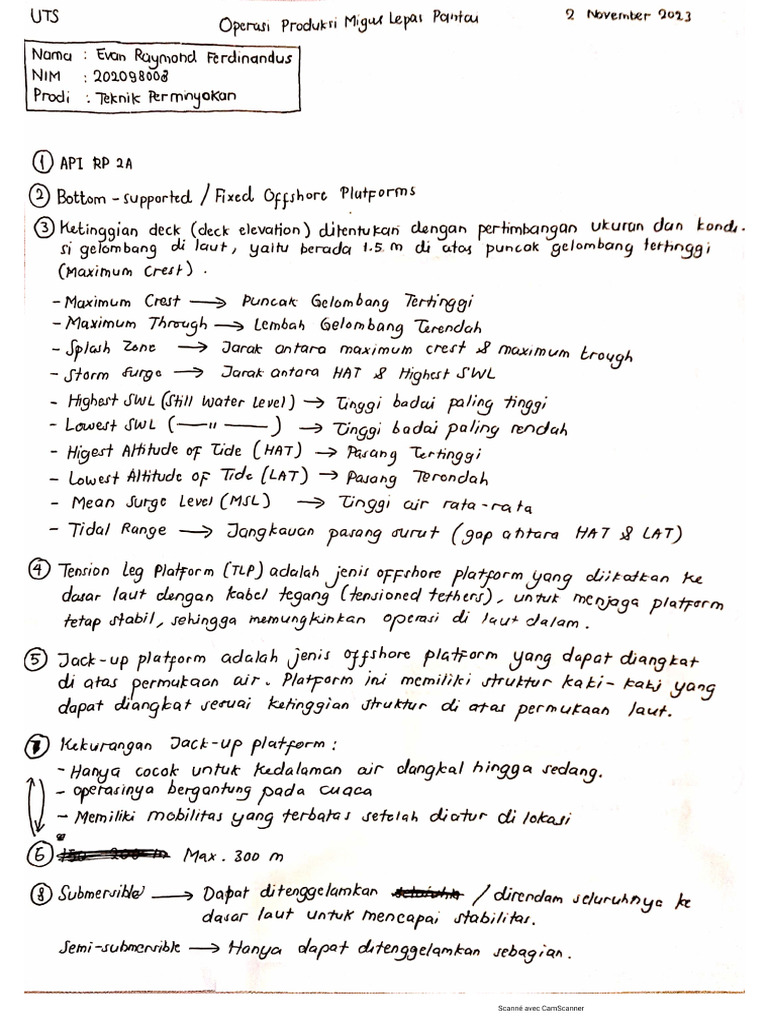 UTS
Operasi Produksi Migas Lepas Pantai
2 November 2023
Nama : Evan Raymond Ferdinandus
NIM : 202098008
Prodi : Teknik Perminyakan
① API RP 2A
② Bottom-supported / Fixed Offshore Platforms
③ Ketinggian deck (deck elevation) ditentukan dengan pertimbangan ukuran dan kondi-
si gelombang di laut, yaitu berada 1.5 m di atas puncak gelombang tertinggi
(Maximum Crest).
- Maximum Crest → Puncak Gelombang Tertinggi
- Maximum Through → Lembah Gelombang Terendah
- Splash Zone → Jarak antara maximum crest & maximum trough
- Storm Surge → Jarak antara HAT & Highest SWL
- Highest SWL (Still Water Level) → Tinggi badai paling tinggi
- Lowest SWL (—"—) → Tinggi badai paling rendah
- Higest Altitude of Tide (HAT) → Pasang Tertinggi
- Lowest Altitude of Tide (LAT) → Pasang Terendah
- Mean Surge Level (MSL) → Tinggi air rata-rata
- Tidal Range → Jangkauan pasang surut (gap antara HAT & LAT)
④ Tension Leg Platform (TLP) adalah jenis offshore platform yang diikatkan ke
dasar laut dengan kabel tegang (tensioned tethers), untuk menjaga platform
tetap stabil, sehingga memungkinkan operasi di laut dalam.
⑤ Jack-up platform adalah jenis offshore platform yang dapat diangkat
di atas permukaan air. Platform ini memiliki struktur kaki-kaki yang
dapat diangkat sesuai ketinggian struktur di atas permukaan laut.
⑦ Kekurangan Jack-up platform :
- Hanya cocok untuk kedalaman air dangkal hingga sedang.
- operasinya bergantung pada cuaca
- Memiliki mobilitas yang terbatas setelah diatur di lokasi
⑥ Max. 300 m
⑧ Submersible → Dapat ditenggelamkan / direndam seluruhnya ke
dasar laut untuk mencapai stabilitas.
Semi-submersible → Hanya dapat ditenggelamkan sebagian.
Scanné avec CamScanner